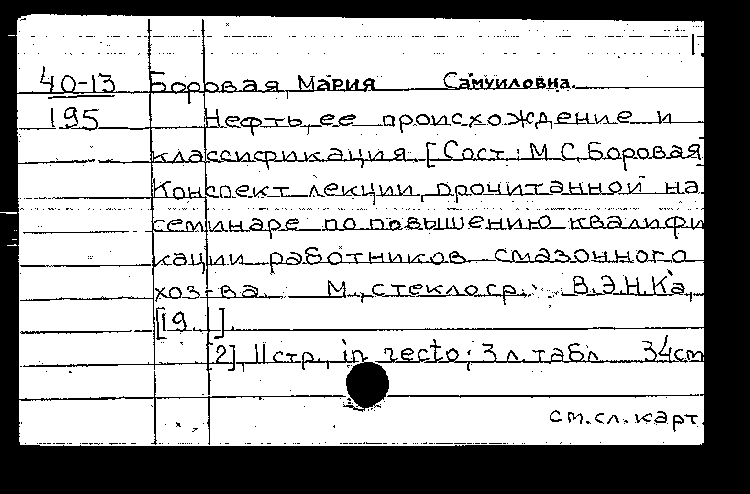 1.
40-13 Боровая, Мария Самуиловна.
195 Нефть, ее происхождение и
классификация. [Сост.: М.С. Боровая]
Конспект лекции, прочитанной на
семинаре по повышению квалифи
кации работников смазочного
хоз-ва. М., стеклогр. В.Э.Н.Ка,
[19 ].
[2], 11 стр., in recto; 3 л. табл 34см
см.сл.карт.